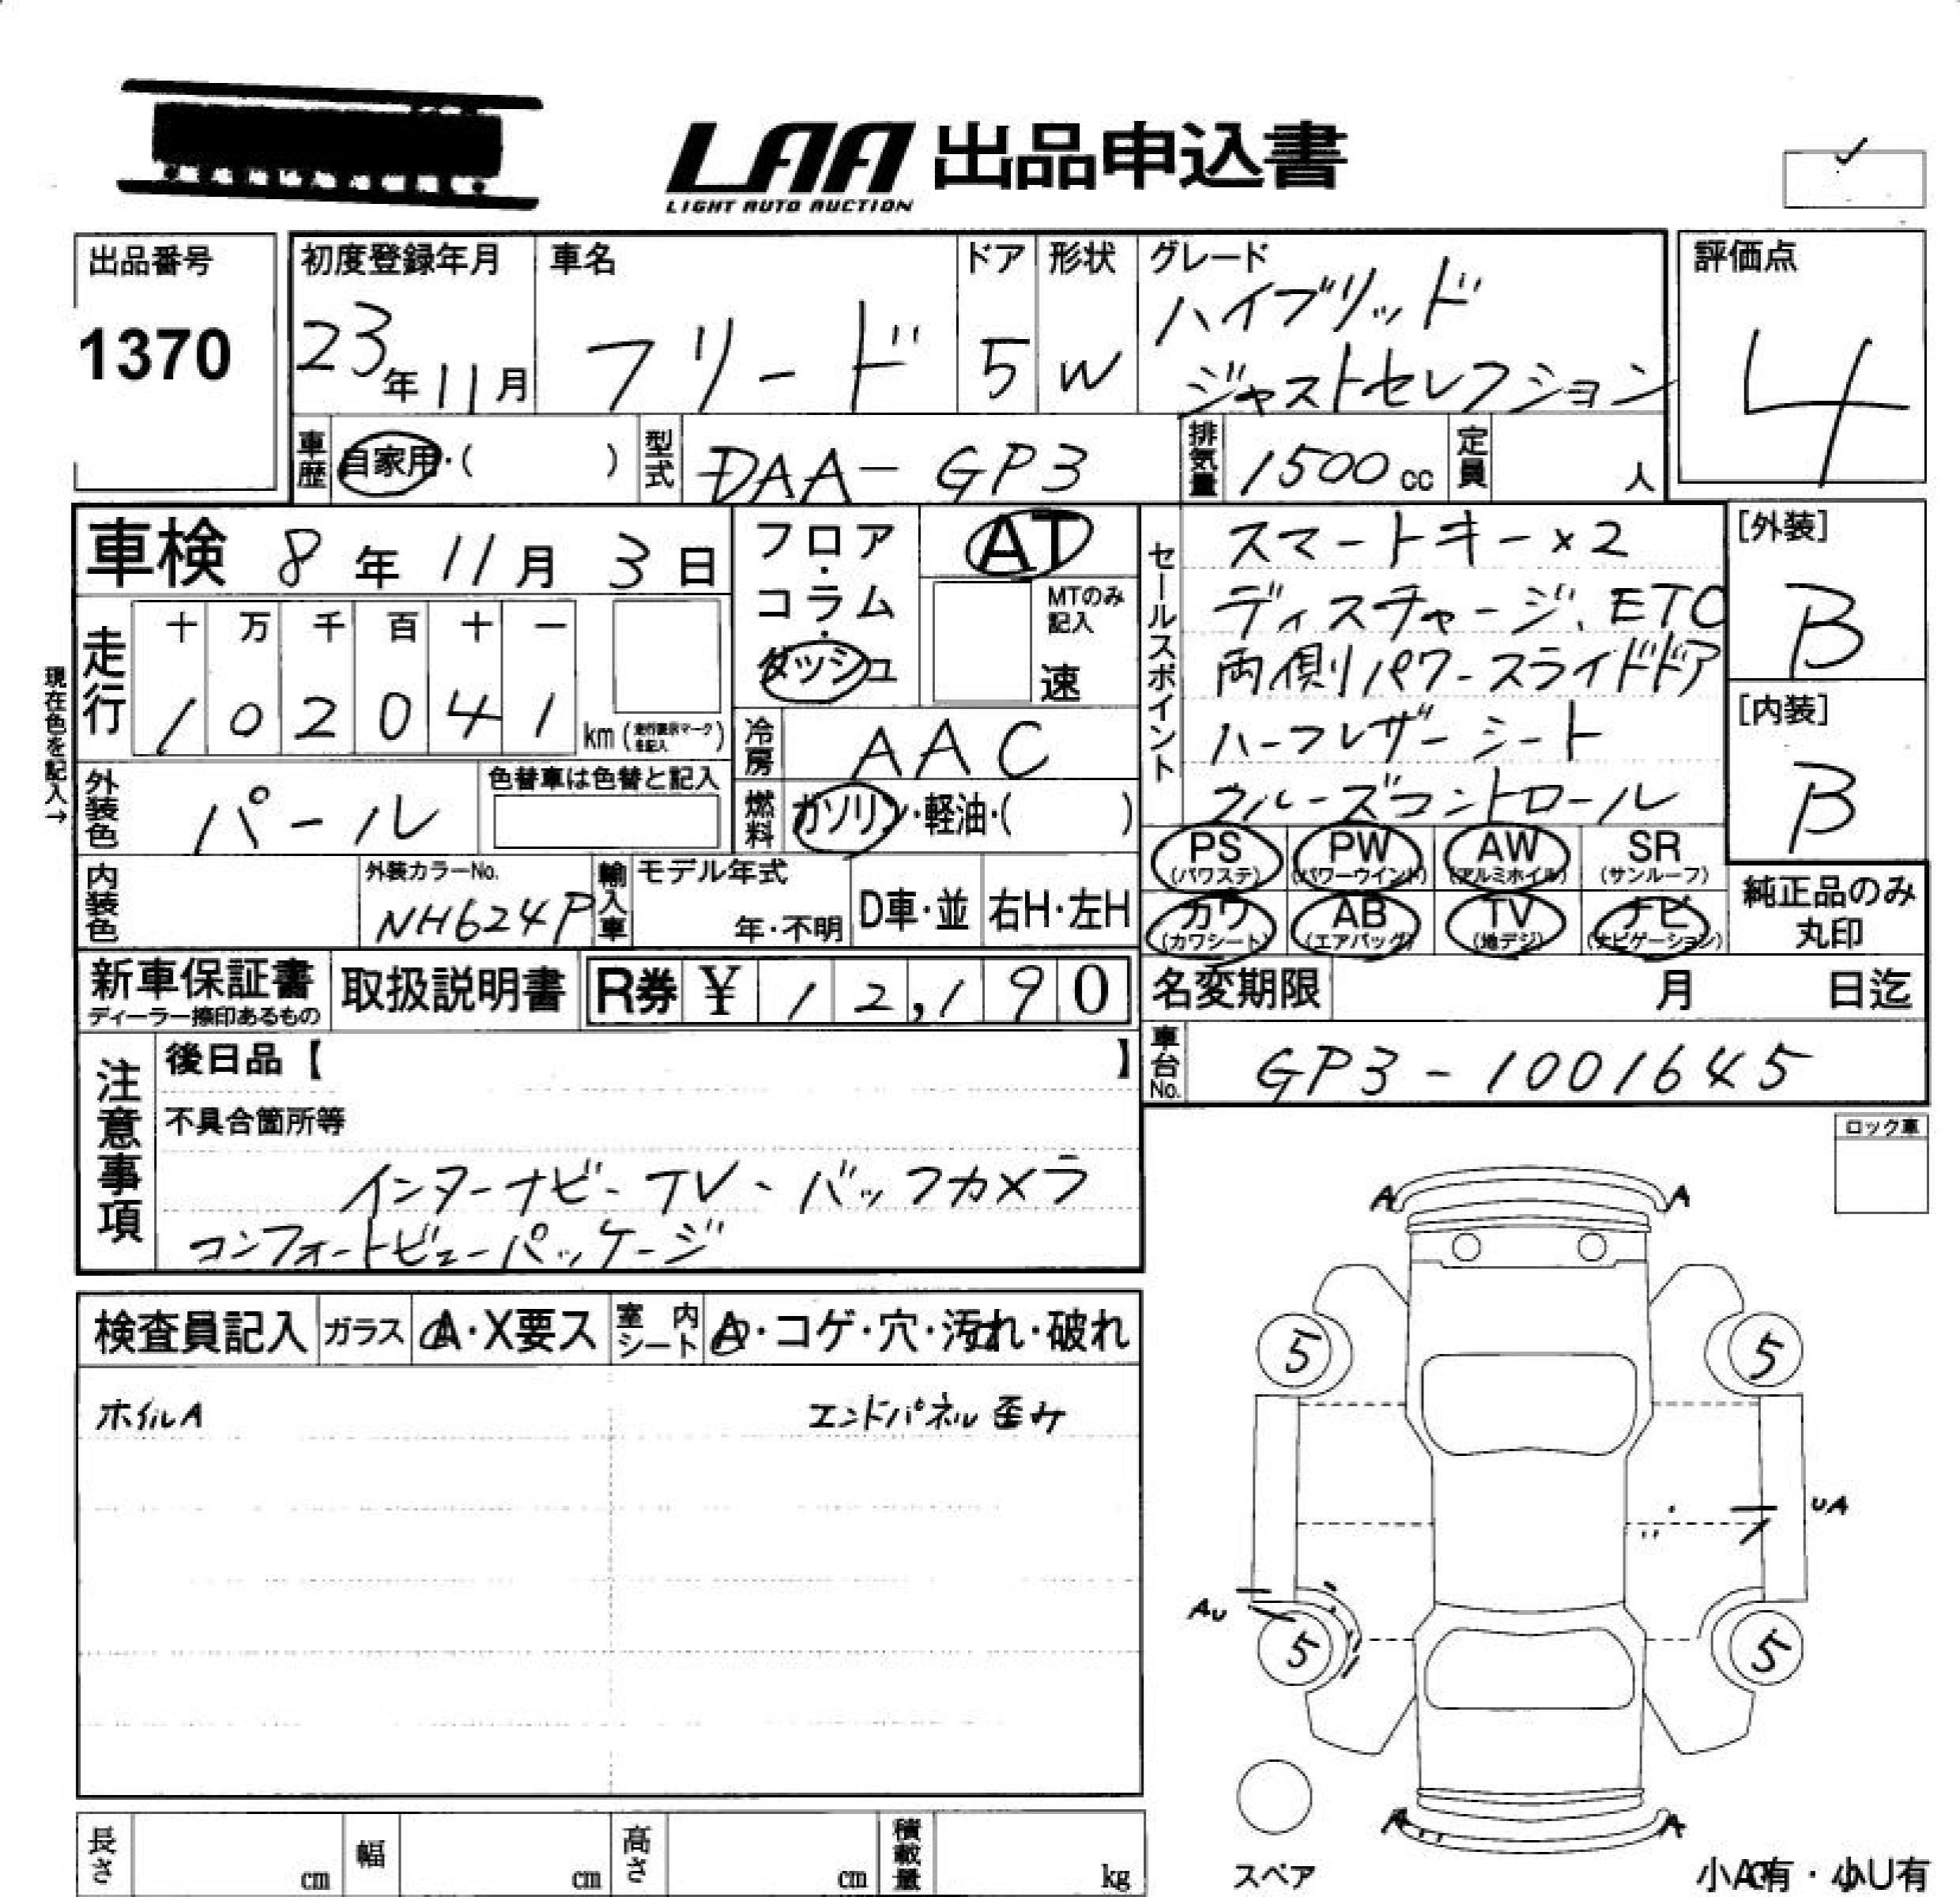 LAA 出品申込書
LIGHT AUTO AUCTION
出品番号
1370
初度登録年月
23年11月
車名
フリード
ドア
5
形状
W
グレード
ハイブリッド
ジャストセレクション
評価点
4
車歴 自家用・( )
型式 DAA-GP3
排気量 1500cc
定員 人
車検 8年11月3日
フロア・コラム・ダッシュ
AT
MTのみ記入
速
現在色を記入→
走行
十 万 千 百 十 一
1 0 2 0 4 1
km (走行表示マークを記入)
冷房 AAC
燃料 ガソリン・軽油・( )
外装色 パール
色替車は色替と記入
内装色
外装カラーNo.
NH624P
輸入車
モデル年式
年・不明
D車・並
右H・左H
セールスポイント
スマートキー×2
ディスチャージ、ETC
両側パワースライドドア
ハーフレザーシート
クルーズコントロール
[外装]
B
[内装]
B
PS (パワステ)
PW (パワーウインド)
AW (アルミホイル)
SR (サンルーフ)
カワ (カワシート)
AB (エアバッグ)
TV (地デジ)
ナビ (ナビゲーション)
純正品のみ丸印
新車保証書
ディーラー捺印あるもの
取扱説明書
R券 ¥ 12,190
名変期限 月 日迄
車台No. GP3-1001645
注意事項
後日品【 】
不具合箇所等
インターナビ、TV、バックカメラ
コンフォートビューパッケージ
ロック車
検査員記入
ガラス A・X要ス
室内シート A・コゲ・穴・汚れ・破れ
ホイルA
エンドパネル歪み
A A
5 5
UA
AU
5 5
A A
スペア
小A有・小U有
長さ cm
幅 cm
高さ cm
積載量 kg